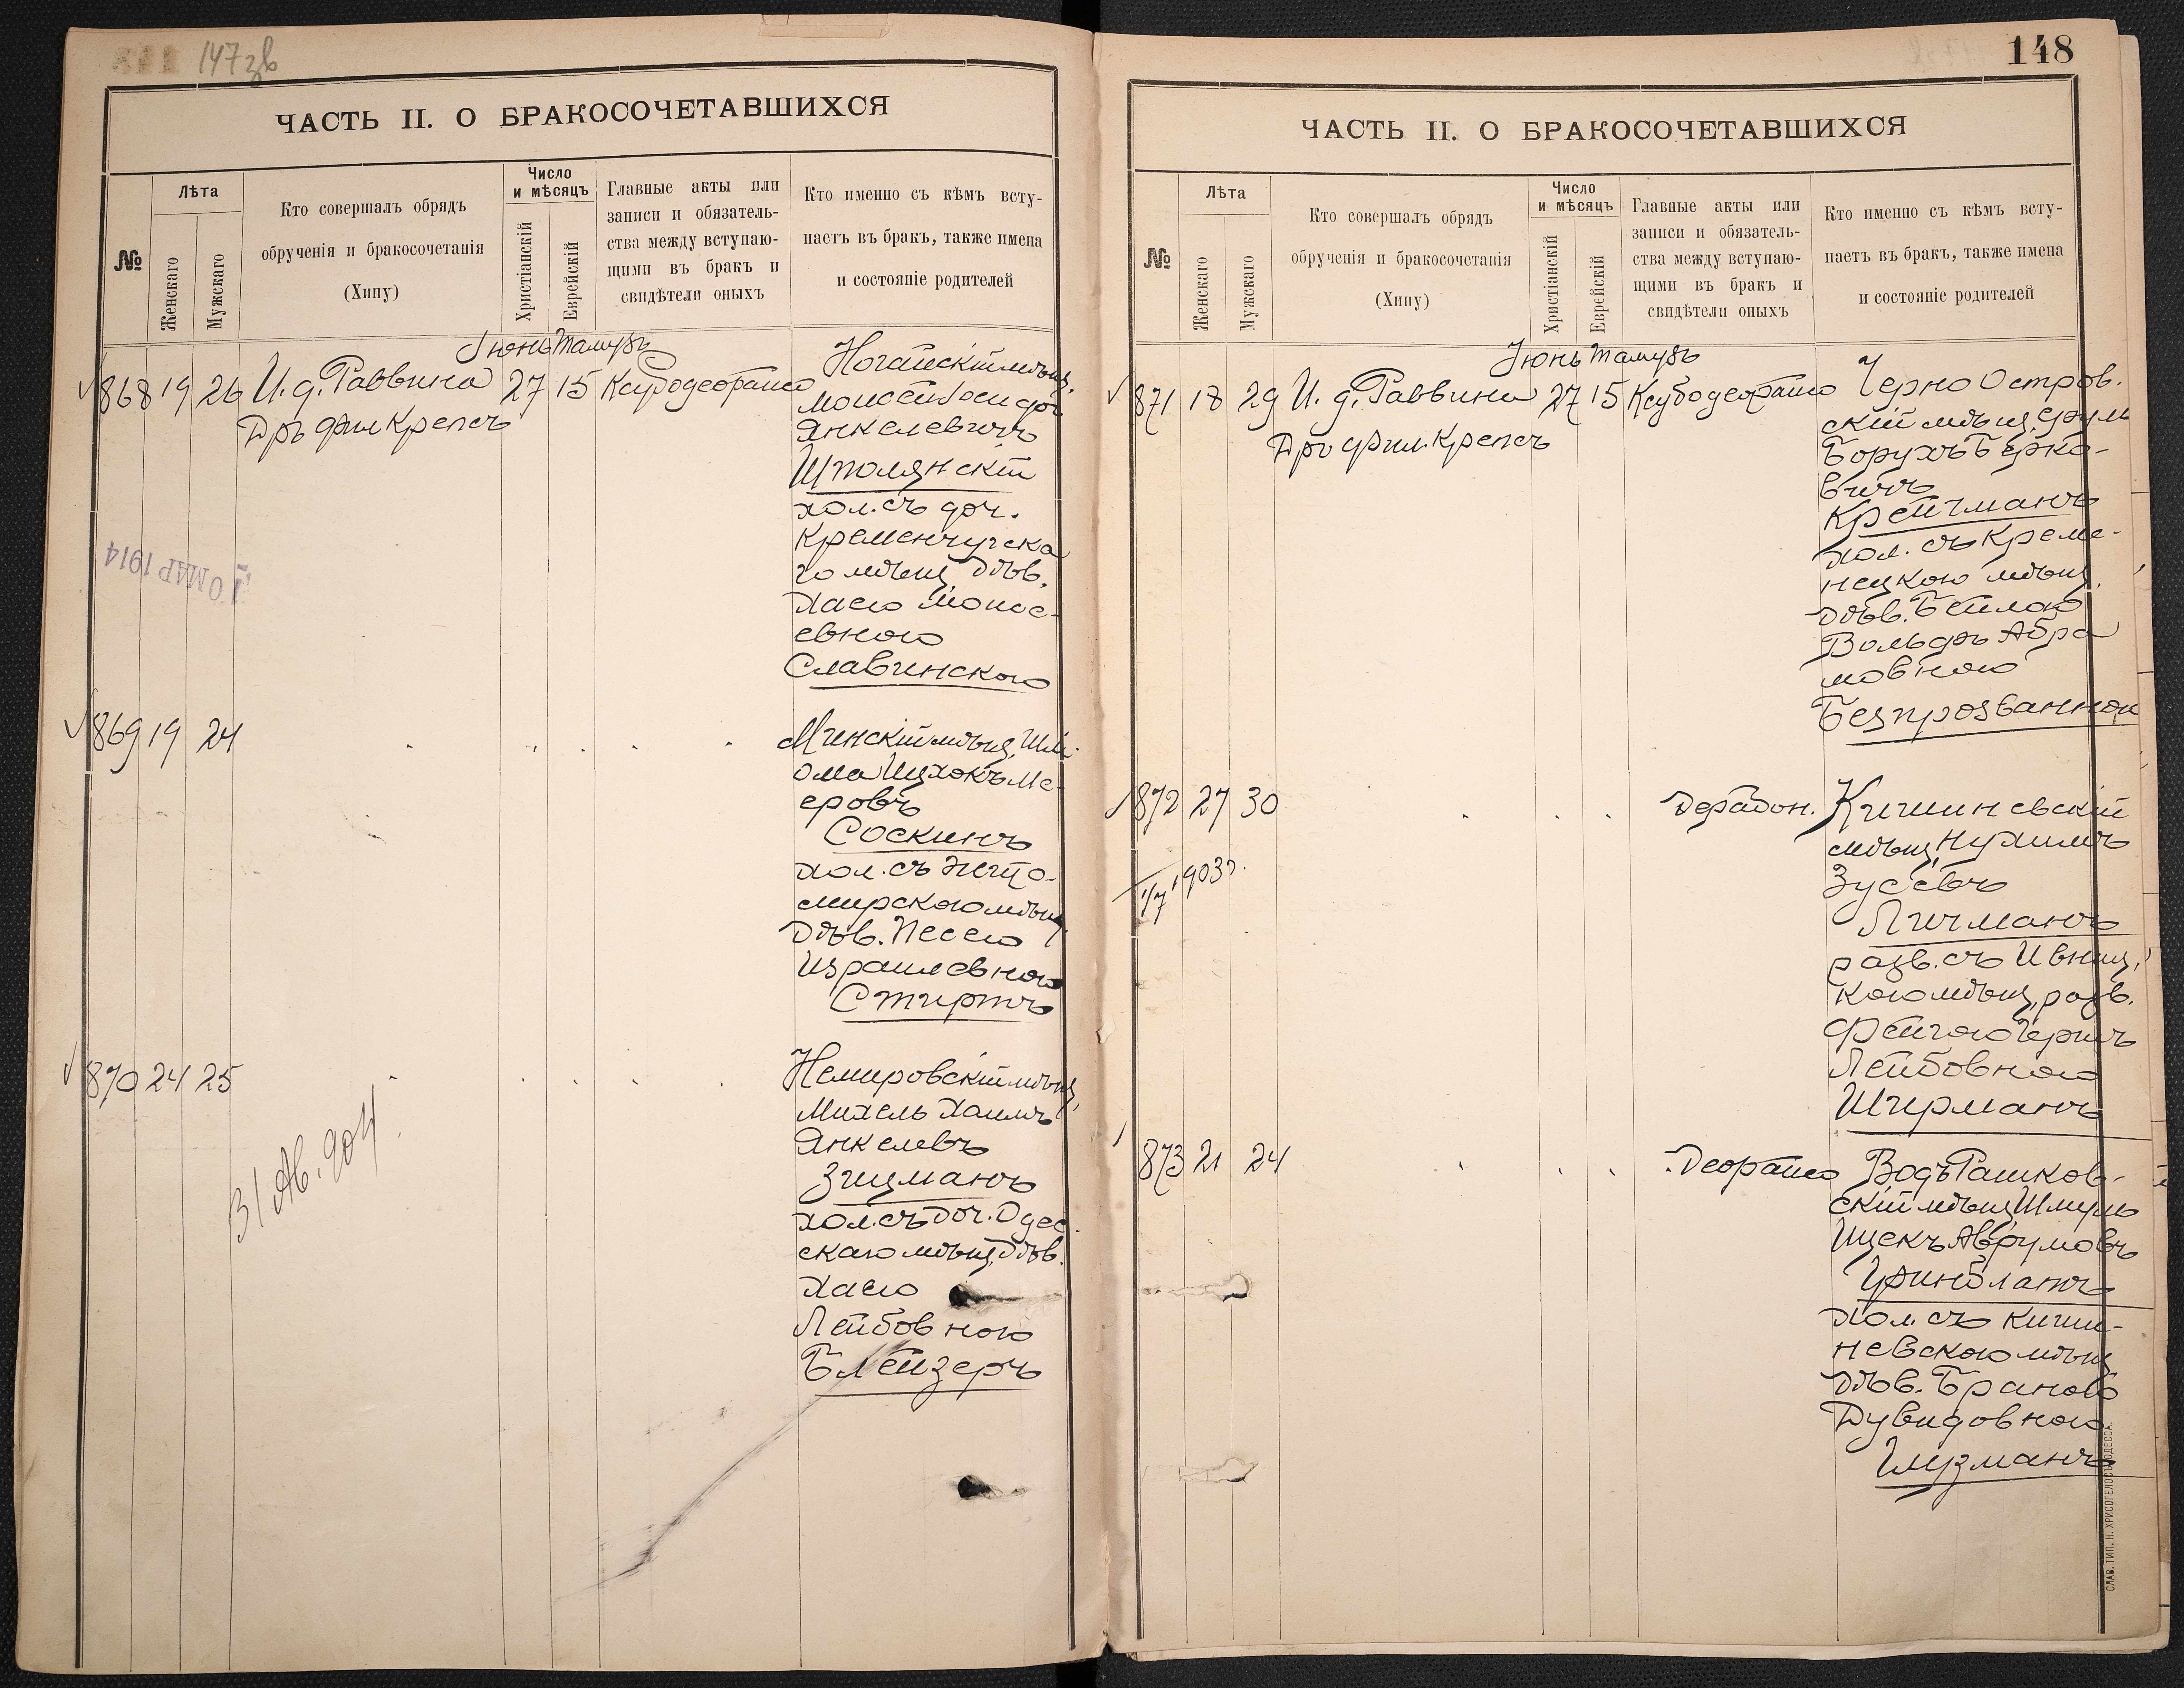 147зв
ЧАСТЬ II. О БРАКОСОЧЕТАВШИХСЯ
№
Лѣта
Женскаго
Мужскаго
Кто совершалъ обрядъ
обрученія и бракосочетанія
(Хипу)
Число
и мѣсяцъ
Христіанскій
Еврейскій
Главные акты или
записи и обязатель-
ства между вступаю-
щими въ бракъ и
свидѣтели оныхъ
Кто именно съ кѣмъ всту-
паетъ въ бракъ, также имена
и состояніе родителей
Іюнь Тамузъ
868 19 26 И. д. Раввина 27 15 Ксубодеорайсо
Дръ Фил Крепсъ
Ногайскій мѣщ.
Мойсей Іосифъ
Янкелевичъ
Шполянскій
хол. съ доч.
Кременчугска
го мѣщ. дѣв.
Хаею Моисе-
евною
Славинскою
10 МАР 1914
869 19 24
Минскій мѣщ. Шл
ома Ицхокъ Ме-
еровъ
Соскинъ
хол. съ Жито-
мирскою мѣщ.
дѣв. Песею
Израилевною
Стиртъ
870 24 25
Немировскій мѣщ.
Михель Хаимъ
Янкелевъ
Зицманъ
хол. съ доч. Одес-
скаго мѣщ. дѣв.
Хаею
Лейбовною
Блейзеръ
31 Ав. 904
148
ЧАСТЬ II. О БРАКОСОЧЕТАВШИХСЯ
№
Лѣта
Женскаго
Мужскаго
Кто совершалъ обрядъ
обрученія и бракосочетанія
(Хипу)
Число
и мѣсяцъ
Христіанскій
Еврейскій
Главные акты или
записи и обязатель-
ства между вступаю-
щими въ бракъ и
свидѣтели оныхъ
Кто именно съ кѣмъ всту-
паетъ въ бракъ, также имена
и состояніе родителей
Іюнь Тамузъ
871 18 29 И. д. Раввина 27 15 Ксубодеорайсо
Дръ Фил. Крепсъ
Черно Остров-
скій мѣщ. Сруль
Борухъ Берко-
вичъ
Крейчманъ
хол. съ Креме-
нецкою мѣщ.
дѣв. Бейлою
Вольфъ Абра
мовною
Безпрозванной
872 27 30
Дерабон.
Кишиневскій
мѣщ. Нухимъ
Зусевъ
Личманъ
разв. съ Ивниц.
кою мѣщ. разв.
Фейгою Черитъ
Лейбовною
Ширманъ
1/7 1903 г.
873 21 24
Деорайсо
Водъ Рашков-
скій мѣщ. Шмуль
Ицекъ Аврумовъ
Гринблатъ
хол. съ Киши-
невскою мѣщ
дѣв. Браною
Дувидовною
Глузманъ
СЛАВ. ТИП. Н. ХРИСОГЕЛОСЪ ОДЕССА.